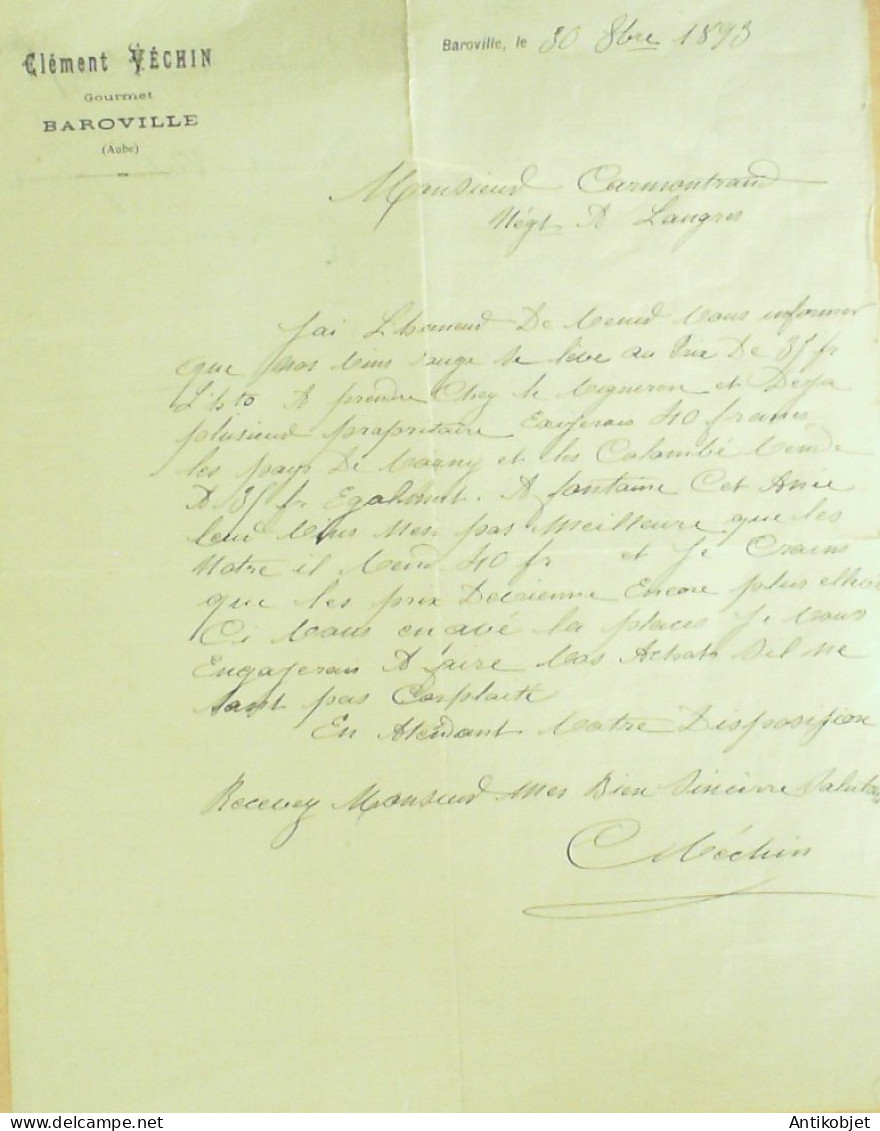 Clément VÉCHIN
Gourmet
BAROVILLE
(Aube)
Baroville, le 30 8bre 1893
Monsieur Carmontrand
Négt A Langres
J'ai Lhonneur De venir vous informer
que nos vins rouge se lève au Prix De 35 fr
L'hto A prendre Chez le vigneron et Deja
plusieur propritaire Exigerais 40 francs
les pays De Vogny et les Colombé vende
A 35 fr Egalment. A fontaine Cet Anée
leur vins nes pas meilleure que les
Notre il vend 40 fr et Je Crains
que les prix Devienne Encore plus
Ci vous en avé la places Je vous
Engagerais A faire vos Achats s'il ne
sont pas
En Atendant votre Disposition
Recevez Monsieur mes Bien Sincerre
C Véchin
Antikobjet